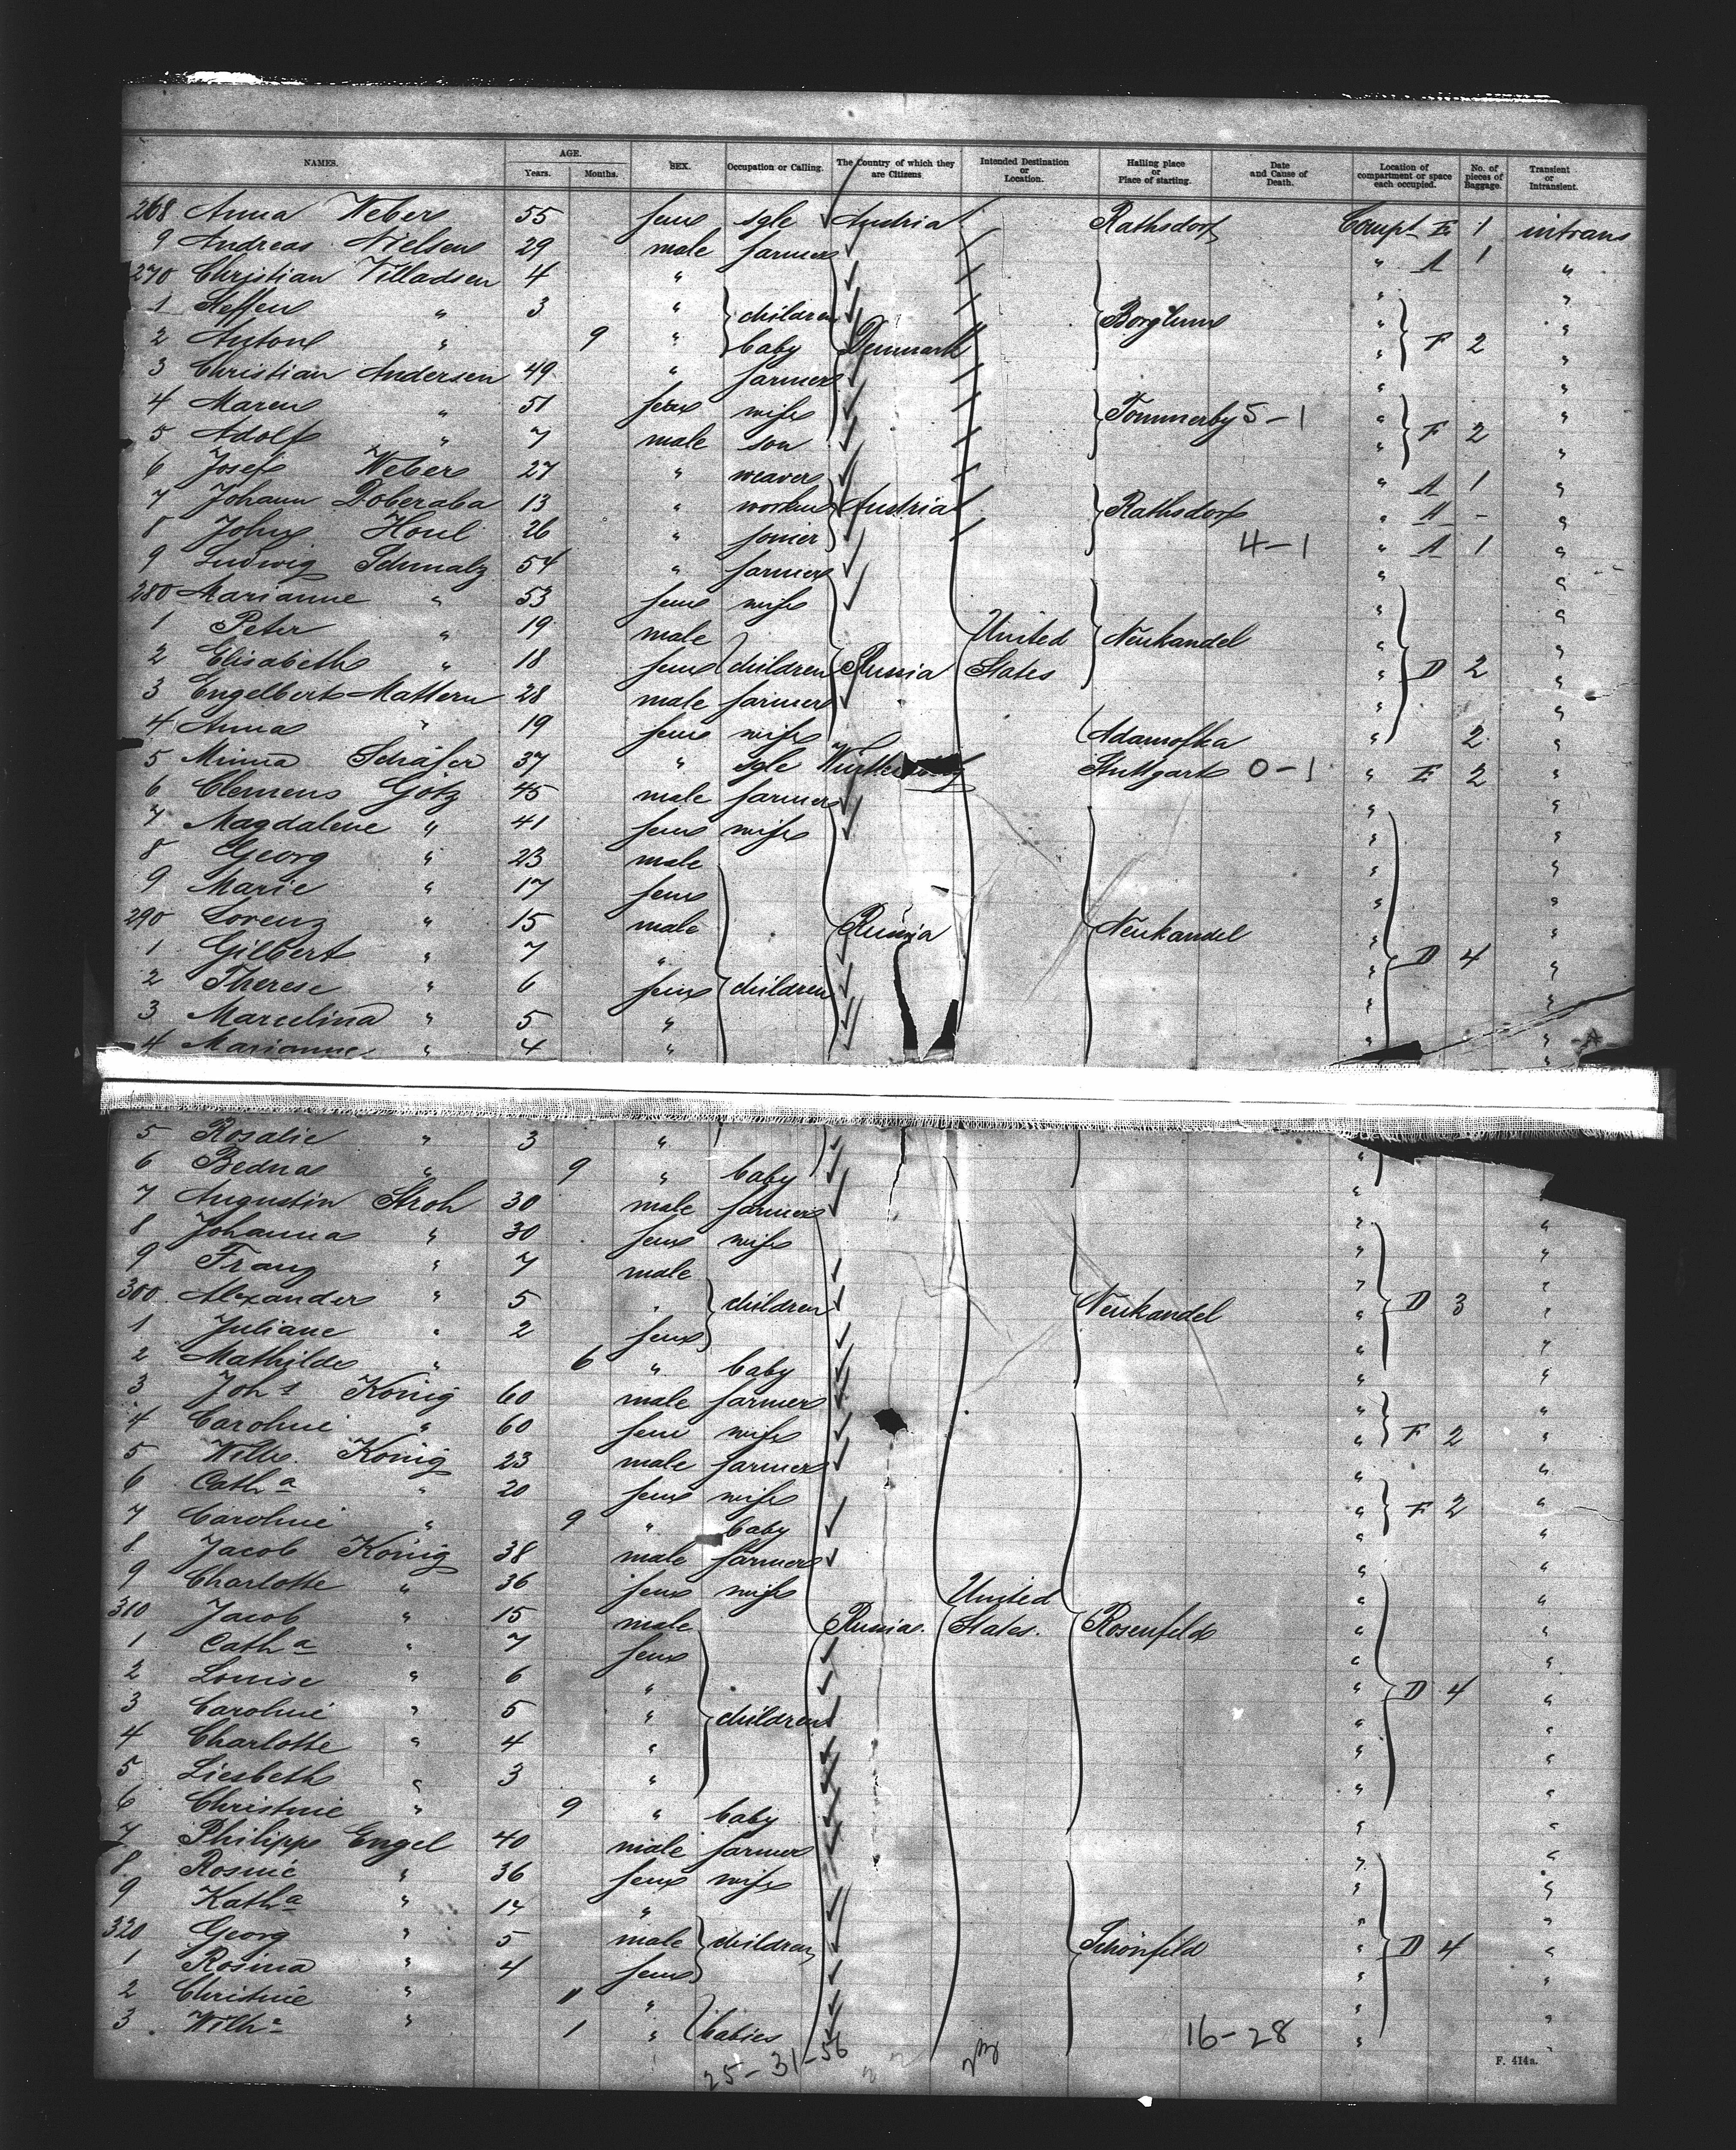 NAMES. AGE. Years. Months. SEX. Occupation or Calling. The Country of which they are Citizens Intended Destination or Location. Hailing place or Place of starting. Date and Cause of Death. Location of compartment or space each occupied. No. of pieces of Baggage. Transient or Intransient.
268 Anna Weber 55 fem sgle Austria Rathsdorf Compt E 1 intrans
9 Andreas Nielsen 29 male farmer " A 1 "
270 Christian Villadsen 4 " " "
1 Steffen " 3 " children Borglum " "
2 Anton " 9 " baby Denmark " F 2 "
3 Christian Andersen 49 " farmer " "
4 Maren " 51 fem wife Tommerby 5-1 " "
5 Adolf " 7 male son " F 2 "
6 Josef Weber 27 " weaver " A 1 "
7 Johann Doberaba 13 " workm Austria Rathsdorf " A - "
8 John Houl 26 " joiner 4-1 " A 1 "
9 Ludwig Schmalz 54 " farmer " "
280 Marianne " 53 fem wife " "
1 Peter " 19 male United Neukandel " "
2 Elisabeth " 18 fem children Russia States " D 2 "
3 Engelbert Mattern 28 male farmer " "
4 Anna " 19 fem wife Adamofka " 2 "
5 Minna Schäfer 37 " sgle Stuttgart 0-1 " E 2 "
6 Clemens Götz 45 male farmer " "
7 Magdalene " 41 fem wife " "
8 Georg " 23 male " "
9 Marie " 17 fem " "
290 Lorenz " 15 male Russia Neukandel " "
1 Gilbert " 7 " " D 4 "
2 Therese " 6 fem children " "
3 Marcelina " 5 " " "
4 Marianne " 4 " "
5 Rosalie " 3 "
6 " 9 " baby "
7 Augustin Stroh 30 male farmer "
8 Johanna " 30 fem wife " "
9 Franz " 7 male " "
300 Alexander " 5 " children Neukandel " D 3 "
1 Juliane " 2 fem " "
2 Mathilde " 6 " baby " "
3 Johs König 60 male farmer " "
4 Caroline " 60 fem wife " F 2 "
5 Willi. König 23 male farmer " "
6 Catha " 20 fem wife " F 2 "
7 Caroline " 9 " baby " "
8 Jacob König 38 male farmer " "
9 Charlotte " 36 fem wife United " "
310 Jacob " 15 male Russia. States. Rosenfeld " "
1 Catha " 7 fem " "
2 Louise " 6 " " D 4 "
3 Caroline " 5 " children " "
4 Charlotte " 4 " " "
5 Liesbeth " 3 " " "
6 Christine " 9 " baby " "
7 Philipp Engel 40 male farmer " "
8 Rosine " 36 fem wife " "
9 Katha " 14 " "
320 Georg " 5 male children Schönfeld " D 4 "
1 Rosina " 4 fem " "
2 Christine " 11 " " "
3 Wilha " 1 " babies 16-28 " "
25-31-56
F. 414a.